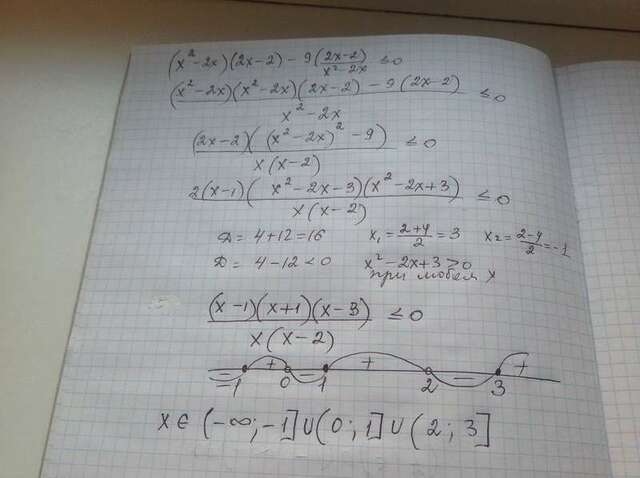 (x²-2x)(2x-2) - 9(2x-2)/(x²-2x) ≤0
(x²-2x)(x²-2x)(2x-2) - 9(2x-2)/(x²-2x) ≤0
(2x-2)((x²-2x)²-9)/x(x-2) ≤0
2(x-1)(x²-2x-3)(x²-2x+3)/x(x-2) ≤0
Д = 4+12=16 x₁ = (2+4)/2 = 3 x₂ = (2-4)/2 = -1
Д = 4-12<0 x²-2x+3>0
при любом x
(x-1)(x+1)(x-3)/x(x-2) ≤0
- + - + - +
-1 0 1 2 3
x∈ (-∞;-1]∪(0;1]∪(2;3]